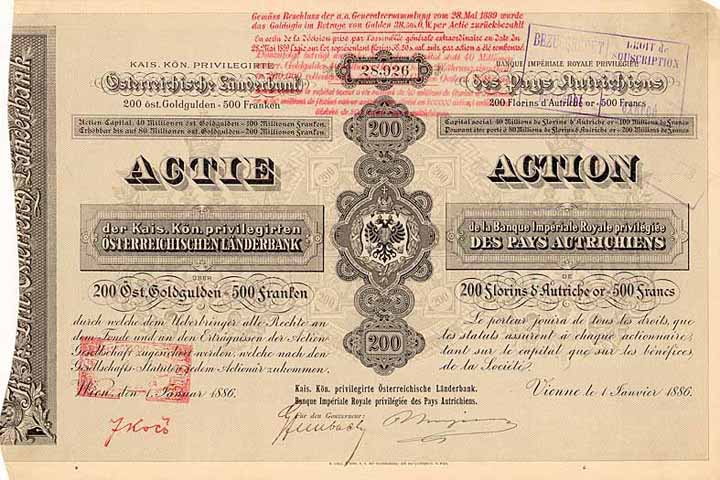 Gemäss Beschluss der a.o. Generalversammlung vom 28. Mai 1889 wurde
das Goldagio im Betrage von Gulden 38,50 Ö. W. per Actie zurückbezahlt
En acte de la décision prise par l'assemblée générale extraordinaire en Date du
28.926
KAIS. KÖN. PRIVILEGIRTE
Österreichische Länderbank
200 öst. Goldgulden - 500 Franken
Actien Capital: 40 Millionen öst. Goldgulden - 100 Millionen Franken,
Erhöhbar bis auf 80 Millionen öst. Goldgulden - 200 Millionen Franken.
ACTIE
der Kais. Kön. privilegirten
ÖSTERREICHISCHEN LÄNDERBANK
ÜBER
200 Öst. Goldgulden - 500 Franken
durch welche dem Ueberbringer alle Rechte an
dem Fonde und an den Erträgnissen der Actien-
Gesellschaft zugesichert werden, welche nach den
Gesellschafts-Statuten jedem Actionär zukommen.
Wien, den 1. Januar 1886.
200
200
BANQUE IMPÉRIALE ROYALE PRIVILÉGIÉE
des Pays Autrichiens
200 Florins d'Autriche or - 500 Francs
Capital social: 40 Millions de Florins d'Autriche or - 100 Millions de Francs
Pouvant être porté à 80 Millions de Florins d'Autriche or - 200 Millions de Francs.
BEZUGSRECHT
DROIT de
SOUSCRIPTION
ACTION
de la Banque Impériale Royale privilégiée
DES PAYS AUTRICHIENS
DE
200 Florins d'Autriche or - 500 Francs
Le porteur jouira de tous les droits, que
les statuts assurent à chaque actionnaire,
tant sur le capital que sur les bénéfices
de la Société.
Vienne le 1 Janvier 1886.
Kais. Kön. privilegirte Österreichische Länderbank.
Banque Impériale Royale privilégiée des Pays Autrichiens.
Für den Gouverneur: